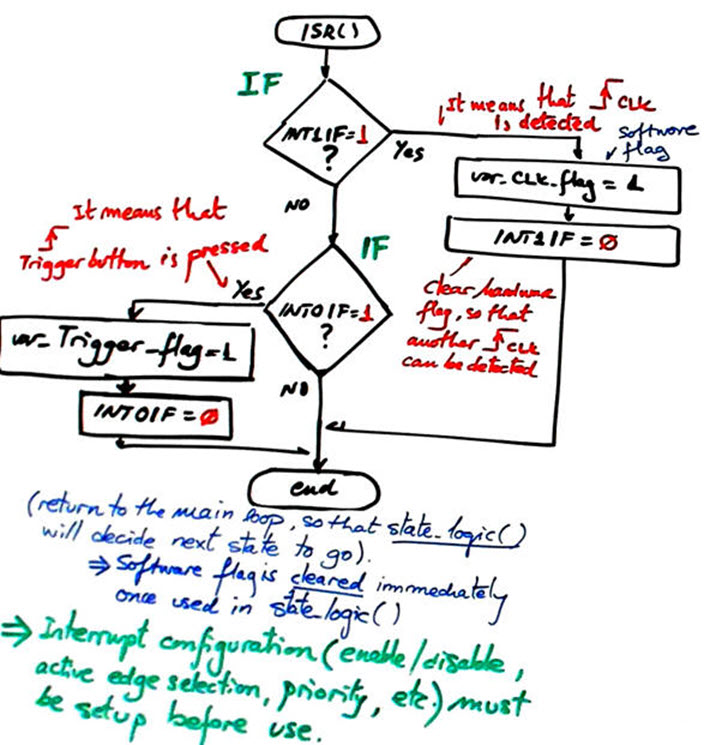 ISR()
IF
INT1IF=1
?
Yes
It means that CLK
is detected
software
flag
var_CLK_flag = 1
INT1IF = Ø
clear hardware
flag, so that
another CLK
can be detected
NO
IF
It means that
Trigger button is pressed
Yes
INT0IF=1
?
var_Trigger_flag=1
INT0IF = Ø
NO
end
(return to the main loop, so that state_logic()
will decide next state to go).
⇒ Software flag is cleared immediately
once used in state_logic()
⇒ Interrupt configuration (enable/disable,
active edge selection, priority, etc.) must
be setup before use.